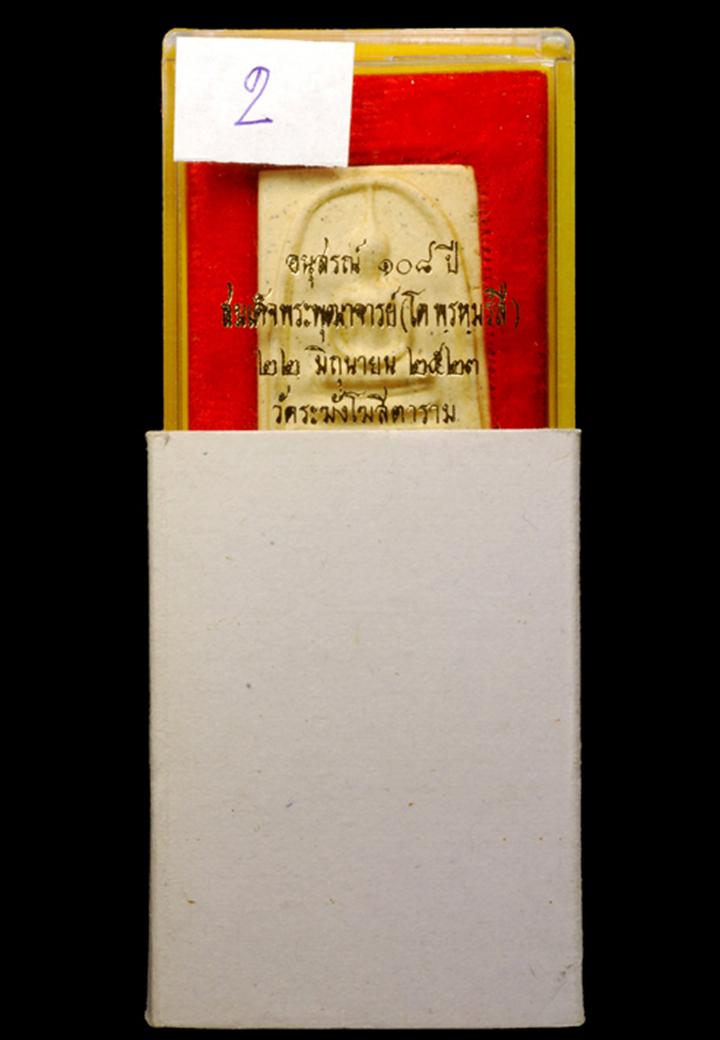 2
อนุสรณ์ ๑๐๘ ปี
สมเด็จพระพุฒาจารย์(โต พรหมรังสี)
๒๒ มิถุนายน ๒๕๒๓
วัดระฆังโฆสิตาราม